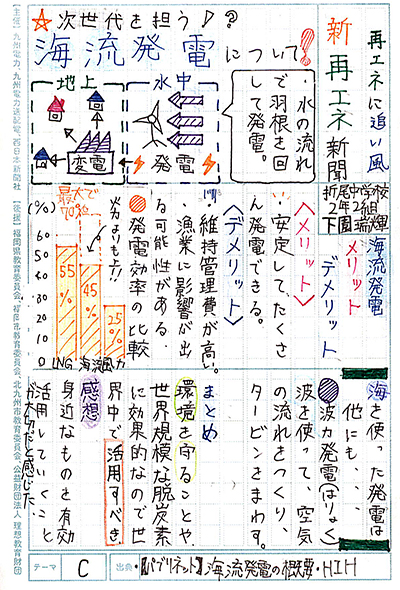 再エネに追い風
新再エネ新聞
折尾中学校
2年2組
下園瑞輝
☆次世代を担う♪?
海流発電について!
・水の流れ
で羽根を回
して発電。
地上
水中
変電
発電
海流発電
メリット
デメリット
〈メリット〉
・安定して、たくさ
ん発電できる。
〈デメリット〉
・維持管理費が高い。
・漁業に影響が出
る可能性がある。
●発電効率の比較
火力よりも下!!
最大で
70%
(%)
60
50
40
30
20
10
0
55%
45%
25%
LNG
海流
風力
海を使った発電は
他にも、、、
●波力発電(はりょく)
波を使って、空気
の流れをつくり、
タービンをまわす。
まとめ
環境を守ることや
世界規模な脱炭素
に効果的なので世
界中で活用すべき
感想
身近なものを有効
活用していくこと
が大切だと感じた。
テーマ
C
出典・【パブリネット】海流発電の概要・HIH
【主催】九州電力、九州電力送配電、西日本新聞社
【後援】福岡県教育委員会、福岡市教育委員会、北九州市教育委員会、公益財団法人 理想教育財団